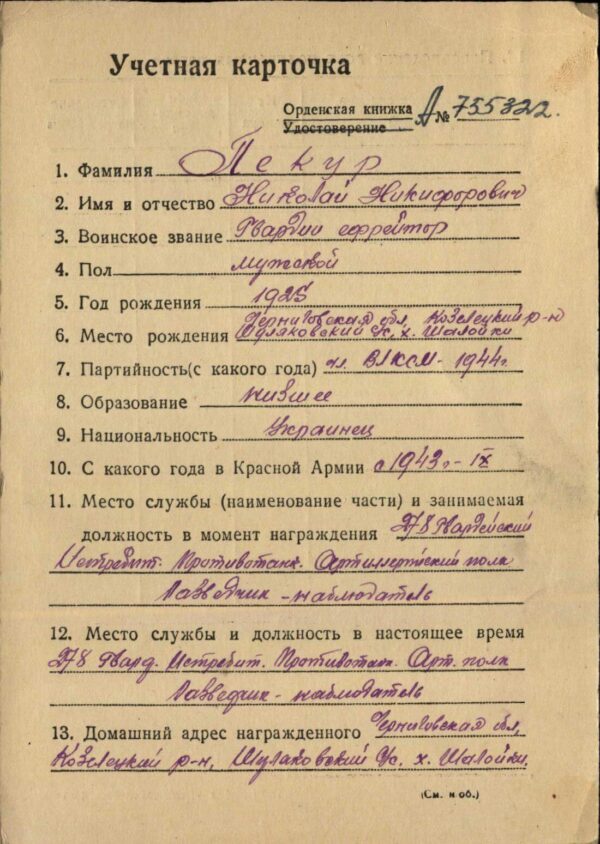 Учетная карточка
Орденская книжка А № 755322.
Удостоверение
1. Фамилия Пекур
2. Имя и отчество Николай Никифорович
3. Воинское звание Гвардии ефрейтор
4. Пол мужской
5. Год рождения 1925
Черниговская обл, Козелецкий р-н
6. Место рождения с/с, х. Шалойки
7. Партийность(с какого года) чл. ВЛКСМ - 1944г
8. Образование низшее
9. Национальность Украинец
10. С какого года в Красной Армии с 1943г - IX
11. Место службы (наименование части) и занимаемая
должность в момент награждения 278 Гвардейский
Истребит. Противотанк. Артиллерийский полк
Разведчик - наблюдатель
12. Место службы и должность в настоящее время
278 Гвард. Истребит. Противотанк. Арт. полк
Разведчик - наблюдатель
13. Домашний адрес награжденного Черниговская обл,
Козелецкий р-н, Шуляковский с/с, х. Шалойки.
(См. н об.)